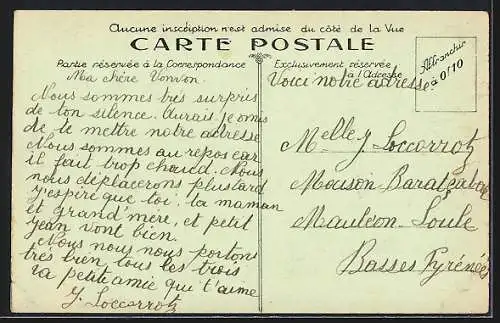 Aucune inscription n'est admise du côté de la Vue
CARTE POSTALE
Partie réservée à la Correspondance
Exclusivement réservée
à l'Adresse
Affranchir
à 0f10
Ma chère Vonvon.
Voici notre adresse
Nous sommes très surpris
de ton silence. Aurais je omis
de te mettre notre adresse
Nous sommes au repos car
il faut trop chaud. Nous
nous déplacerons plus tard
J'espire que toi, ta maman
et grand mère, et petit
Jean vont bien.
Nous nous nous portons
très bien tous les trois
ta petite amie qui t'aime
Y. Loccarrotz
Melle Y Loccorrotz
Maison
Mauléon-Soule
Basses Pyrénées